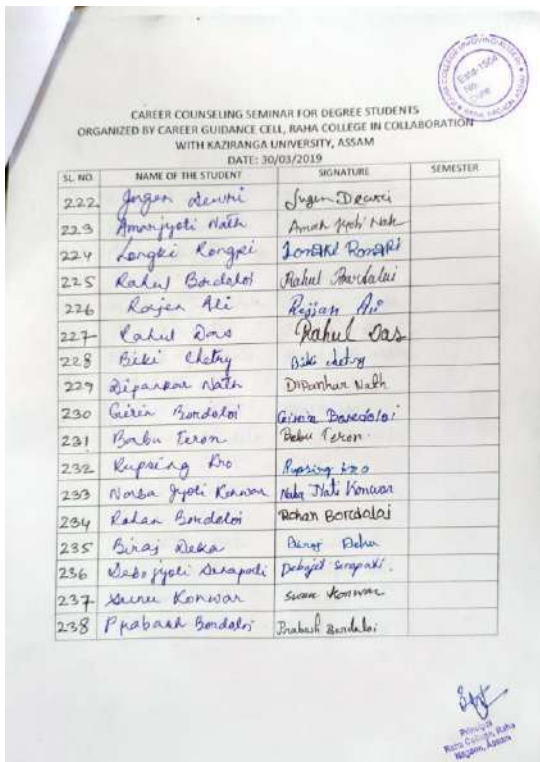 Estd-1964
CAREER COUNSELING SEMINAR FOR DEGREE STUDENTS
ORGANIZED BY CAREER GUIDANCE CELL, RAHA COLLEGE IN COLLABORATION
WITH KAZIRANGA UNIVERSITY, ASSAM
DATE: 30/03/2019
SL. NO. NAME OF THE STUDENT SIGNATURE SEMESTER
222 Jugen Dewri Jugen Dewri
223 Amarjyoti Nath Amar Jyoti Nath
224 Longki Rongpi Longki Rongpi
225 Rahul Bordoloi Rahul Bordaloi
226 Rajen Ali Rejjan Ali
227 Rahul Das Rahul Das
228 Biki Chetry Biki chetry
229 Dipankar Nath Dipankar Nath
230 Girin Bordoloi Girin Boredoloi
231 Babu Teron Babu Teron.
232 Rupsing kro Rupsing kro
233 Naba Jyoti Konwar Naba Konwar
234 Rohan Bordoloi Rohan Bordoloi
235 Biraj Deka Deka
236 Debojyoti
237 Konwar Konwar
238 Prabash Bordoloi Prabash Bordaloi
Principal
Raha College, Raha
Nagaon, Assam